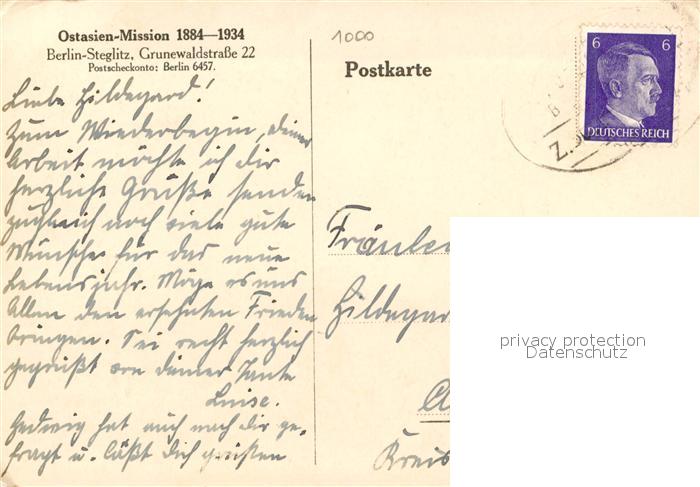 Ostasien-Mission 1884—1934
Berlin-Steglitz, Grunewaldstraße 22
Postscheckonto: Berlin 6457.
Liebe Hildegard!
Zum Wiederbeginn deiner
Arbeit möchte ich dir
herzliche Grüße senden
zugleich noch viele gute
Wünsche für das neue
Lebensjahr. Möge es uns
Allen den ersehnten Frieden
bringen. Sei recht herzlich
gegrüßt von deiner Tante
Luise.
Hedwig hat auch nach dir ge-
fragt u. läßt dich grüßen
1000
Postkarte
6 6
DEUTSCHES REICH
Z.
Fräulein
Hildegar
Kreis
privacy protection
Datenschutz